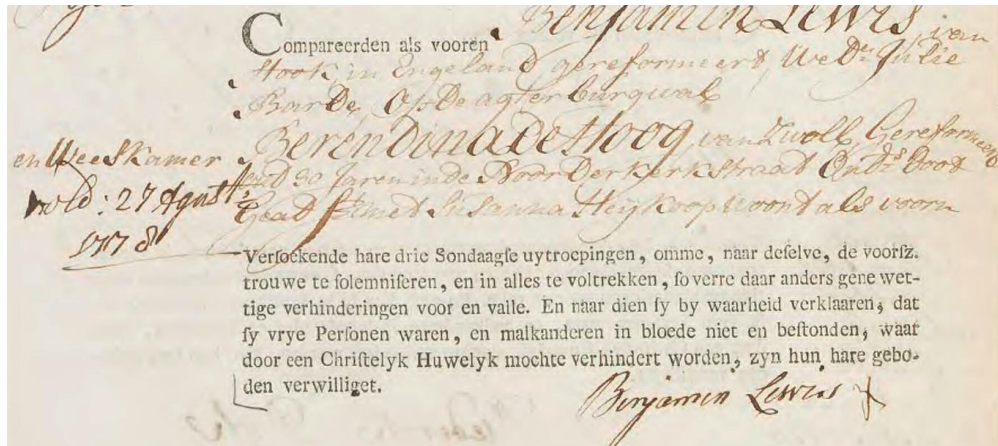 Benjamin Lewis, van
Compareerden als vooren
Hook, in Engeland, gereformeert, Wedr. Julie
Barde, Op de agterburgwal
Berendina de Hoog, van Zwoll, Gereformeerd
en Weeskamer
oud 30 Jaren in de Noorderkerkstraat Ouds. doot
vold: 27 Agust
Geads. met Susanna Heykoop woont als voorn
1778
Versoekende hare drie Sondaagse uytroepingen, omme, naar deselve, de voorsz.
trouwe te solemniseren, en in alles te voltrekken, so verre daar anders gene wet-
tige verhinderingen voor en valle. En naar dien sy by waarheid verklaaren, dat
sy vrye Personen waren, en malkanderen in bloede niet en bestonden, waar
door een Christelyk Huwelyk mochte verhindert worden, zyn hun hare gebo-
den verwilliget.
Benjamin Lewis